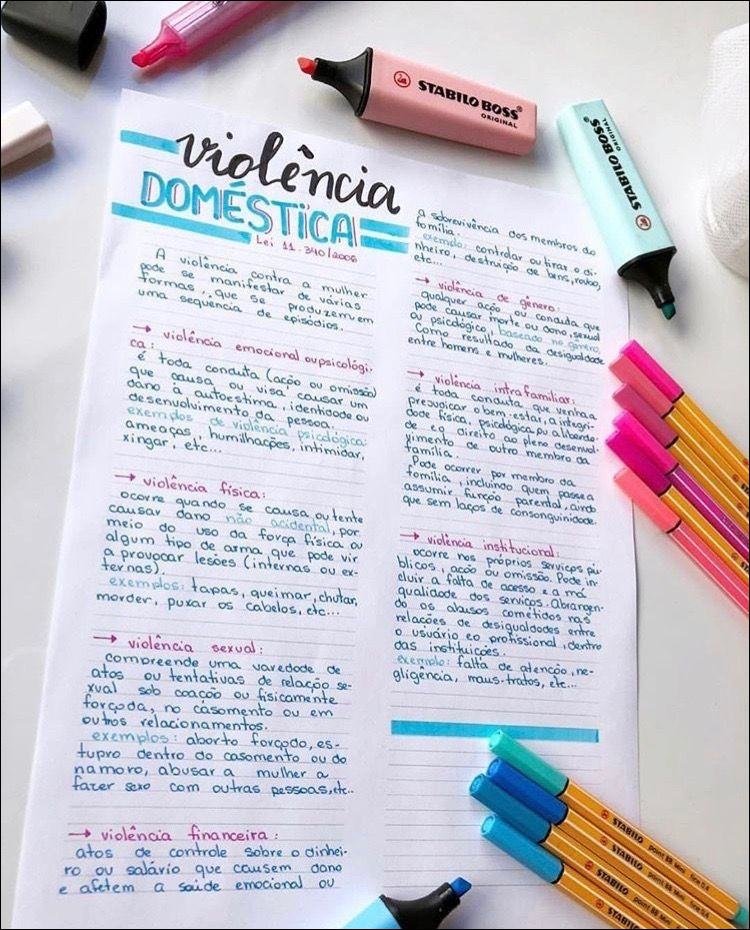 violência
DOMÉSTICA
Lei 11.340/2006
A violência contra a mulher
pode se manifestar de várias
formas, que se produzem em
uma sequência de episódios.
→ violência emocional ou psicológi-
ca:
é toda conduta (ação ou omissão)
que causa ou visa causar um
dano à autoestima, identidade ou
desenvolvimento da pessoa.
exemplos de violência psicológica:
ameaças, humilhações, intimidar,
xingar, etc...
→ violência física:
ocorre quando se causa ou tente
causar dano não acidental, por
meio do uso da força física ou
algum tipo de arma que pode vir
a provocar lesões (internas ou ex-
ternas).
exemplos: tapas, queimar, chutar,
morder, puxar os cabelos, etc...
→ violência sexual:
compreende uma varedade de
atos ou tentativas de relação se-
xual sob coação ou fisicamente
forçada, no casamento ou em
outros relacionamentos.
exemplos: aborto forçado, es-
tupro dentro do casamento ou do
namoro, abusar a mulher a
fazer sexo com outras pessoas, etc..
→ violência financeira:
atos de controle sobre o dinhei-
ro ou salário que causem dano
e afetem a saúde emocional ou
a sobrevivência dos membros da
família.
exemplo: controlar ou tirar o di-
nheiro, destruição de bens, roubo,
etc...
→ violência de gênero:
qualquer ação, ou conduta, que
pode causar morte ou dano, sexual
ou psicológico, baseado no gênero.
Como resultado da desigualdade
entre homens e mulheres.
→ violência intrafamiliar:
é toda conduta que venha a
prejudicar o bem-estar, a integri-
dade física, psicológica ou a liberda-
de e o direito ao pleno desenvol-
vimento de outro membro da
família.
Pode ocorrer por membro da
família, incluindo quem passe a
assumir função parental, ainda
que sem laços de consanguinidade.
→ violência institucional:
ocorre nos próprios serviços pú-
blicos, ação ou omissão. Pode in-
cluir a falta de acesso e a má
qualidade dos serviços. Abrangen-
do os abusos cometidos nas
relações de desigualdades entre
o usuário e o profissional, dentro
das instituições.
exemplo: falta de atenção, ne-
gligência, maus-tratos, etc...
STABILO BOSS
ORIGINAL
STABILO BOSS
ORIGINAL
STABILO point 88 Mini fine 0,4
STABILO point 88 Mini
STABILO point 88 Mini
STABILO